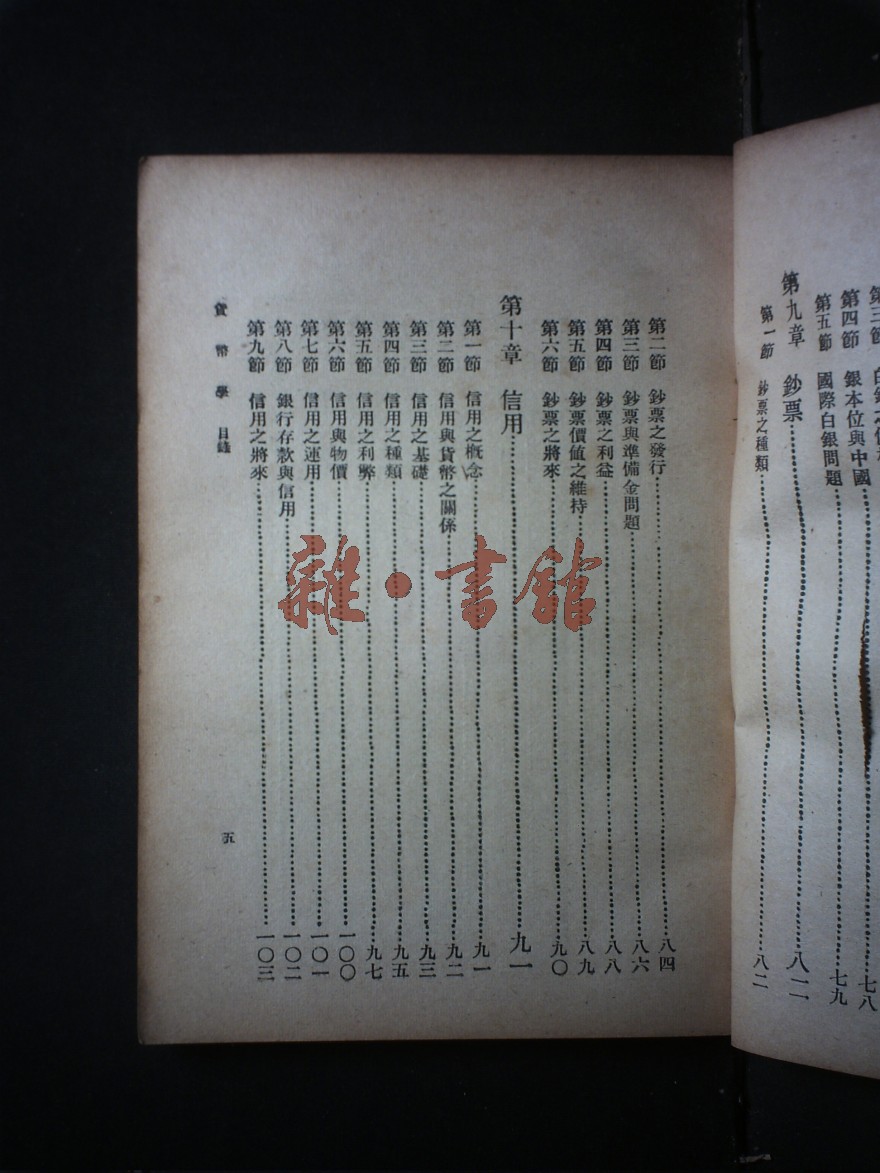 銀本位與中國……七八
第五節 國際白銀問題……七九
第九章 鈔票……八二
第一節 鈔票之種類……八二
第二節 鈔票之發行……八四
第三節 鈔票與準備金問題……八六
第四節 鈔票之利益……八八
第五節 鈔票價值之維持……八九
第六節 鈔票之將來……九〇
第十章 信用……九一
第一節 信用之概念……九一
第二節 信用與貨幣之關係……九二
第三節 信用之基礎……九三
第四節 信用之種類……九五
第五節 信用之利弊……九七
第六節 信用與物價……一〇〇
第七節 信用之運用……一〇一
第八節 銀行存款與信用……一〇二
第九節 信用之將來……一〇三
貨幣學 目錄 五
雜·書館